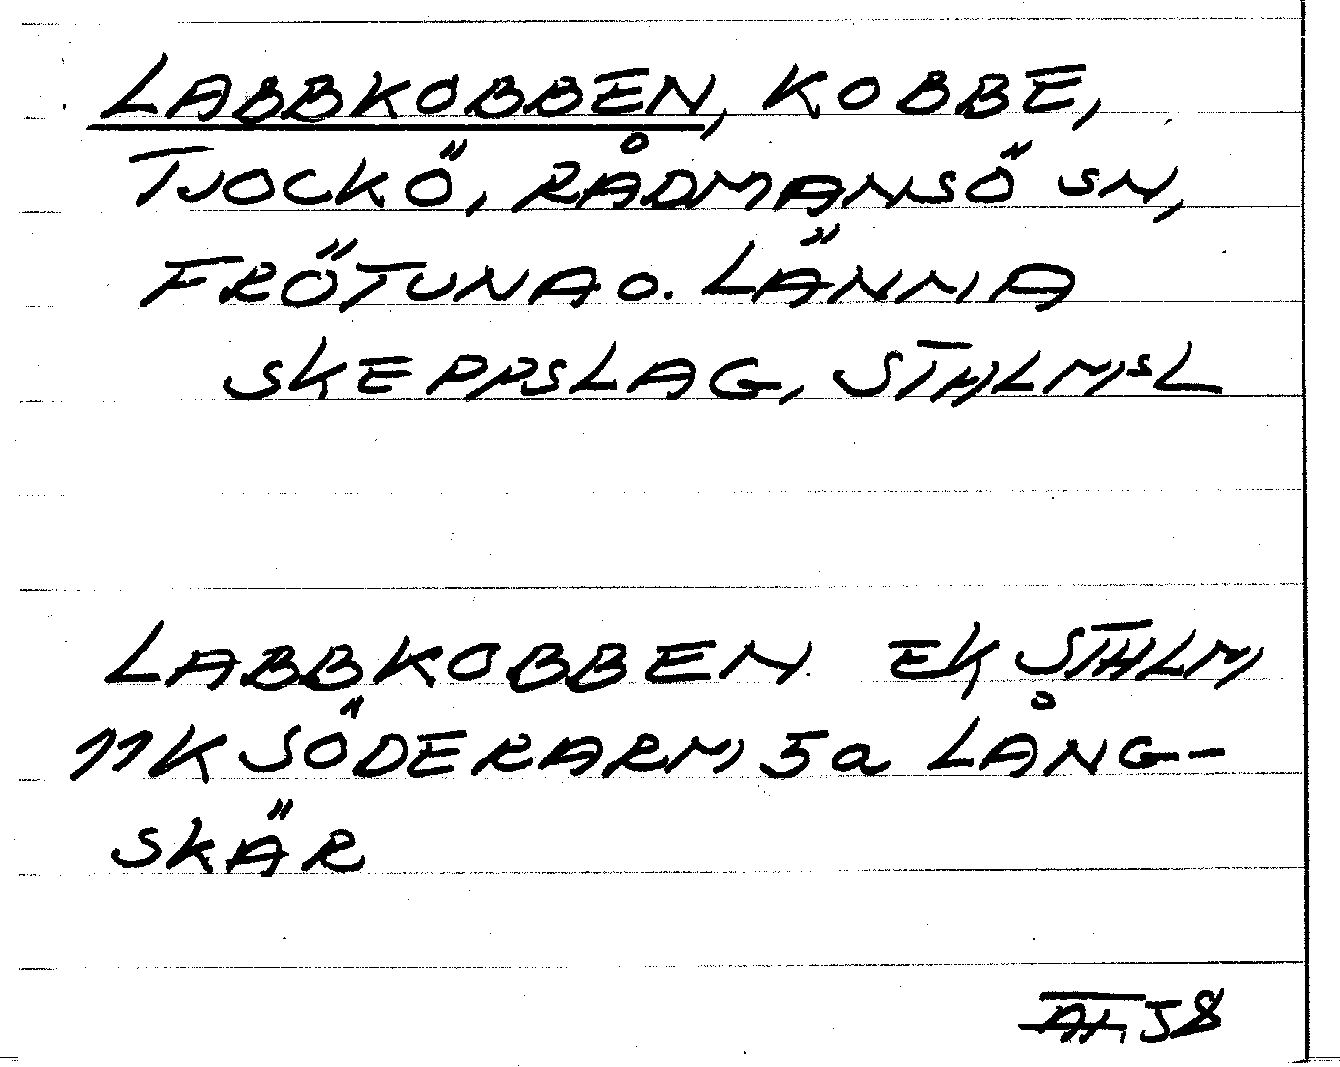 LABBKOBBEN, KOBBE,
TJOCKÖ, RÅDMANSÖ SN,
FRÖTUNA O. LÄNNA
SKEPPSLAG, STHLMSL
LABBKOBBEN EK STHLM
11K SÖDERARM 5a LÅNG-
SKÄR
58